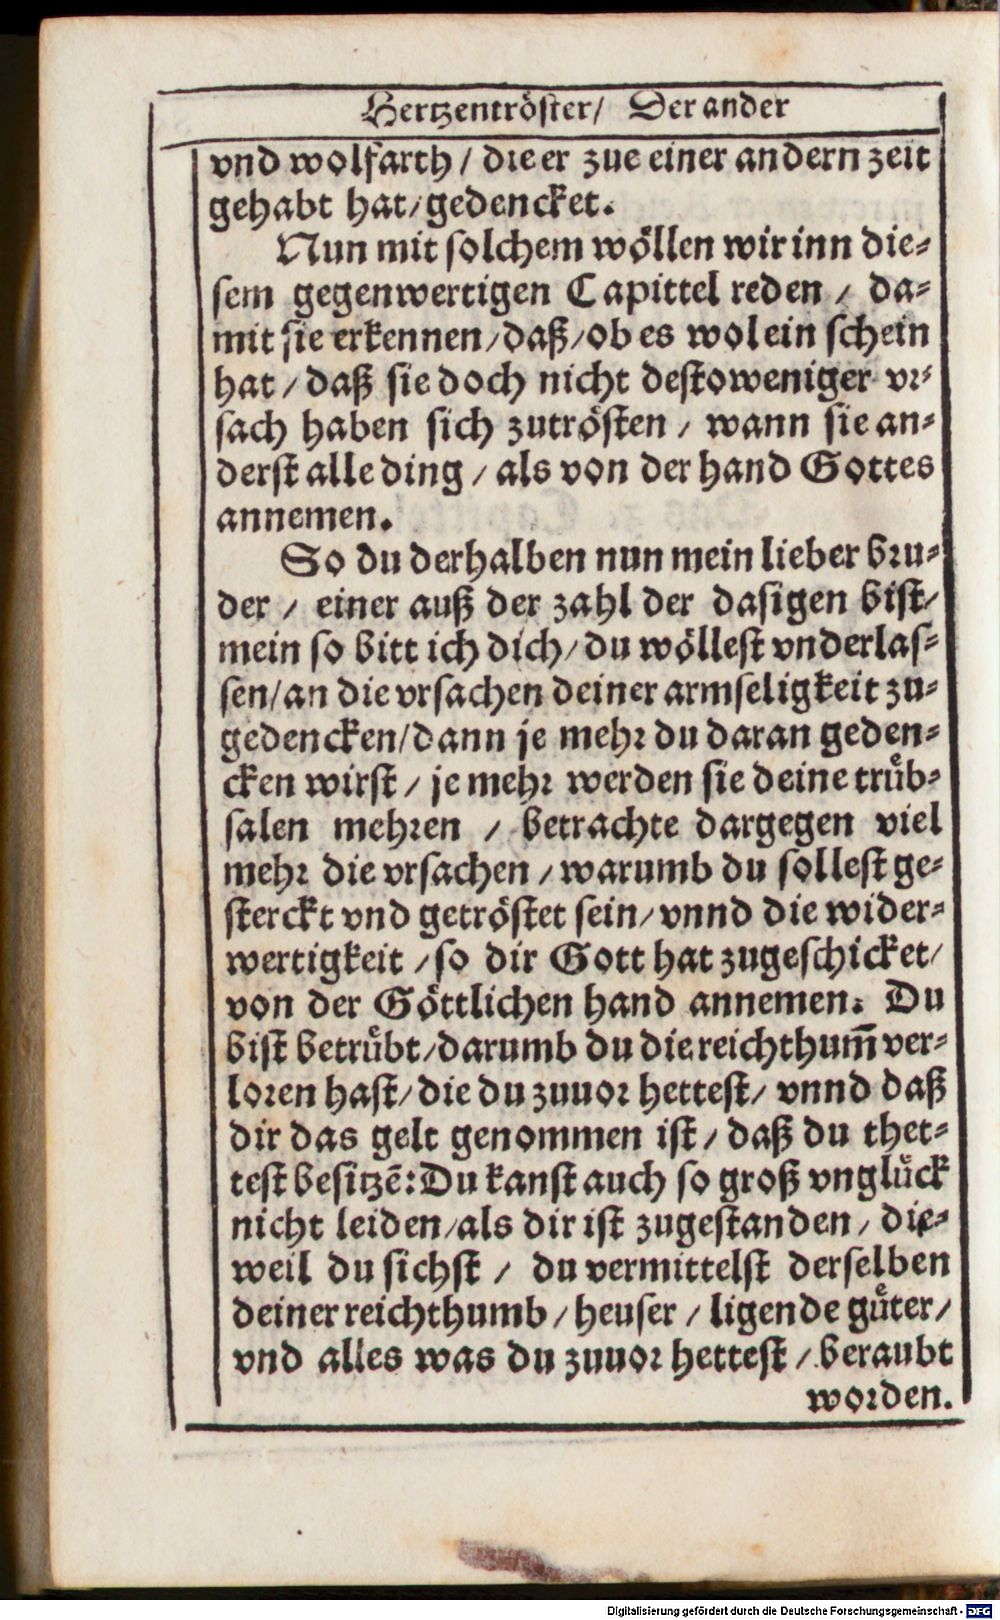 Hertzentröster/ Der ander
vnd wolfarth/ die er zue einer andern zeit
gehabt hat/ gedencket.
Nun mit solchem wöllen wir inn die-
sem gegenwertigen Capittel reden/ da-
mit sie erkennen/ daß/ ob es wol ein schein
hat/ daß sie doch nicht destoweniger vr-
sach haben sich zutrösten/ wann sie an-
derst alle ding/ als von der hand Gottes
annemen.
So du derhalben nun mein lieber bru-
der/ einer auß der zahl der dasigen bist/
mein so bitt ich dich/ du wöllest vnderlas-
sen/ an die vrsachen deiner armseligkeit zu-
gedencken/ dann je mehr du daran geden-
cken wirst/ je mehr werden sie deine trüb-
salen mehren/ betrachte dargegen viel
mehr die vrsachen/ warumb du sollest ge-
sterckt vnd getröstet sein/ vnnd die wider-
wertigkeit/ so dir Gott hat zugeschicket/
von der Göttlichen hand annemen. Du
bist betrübt/ darumb du die reichthum̄ ver-
loren hast/ die du zuuor hettest/ vnnd daß
dir das gelt genommen ist/ daß du thet-
test besitzē: Du kanst auch so groß vnglück
nicht leiden/ als dir ist zugestanden/ die-
weil du sichst/ du vermittelst derselben
deiner reichthumb/ heuser/ ligende güter/
vnd alles was du zuuor hettest/ beraubt
worden.
Digitalisierung gefördert durch die Deutsche Forschungsgemeinschaft - DFG